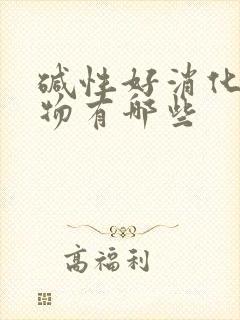 碱性好消化
物有哪些
高福利